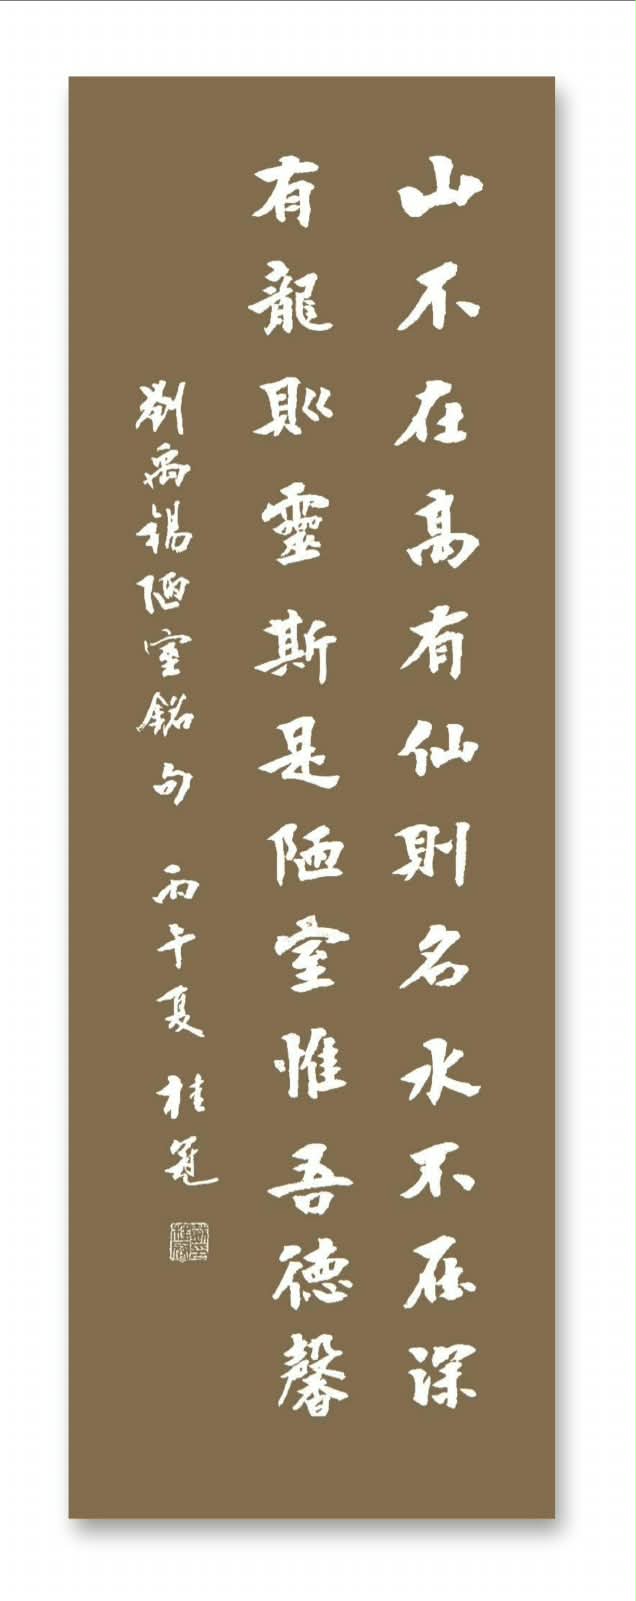 山不在高有仙則名水不在深
有龍則靈斯是陋室惟吾德馨
劉禹錫陋室銘句 丙午夏 桂冠